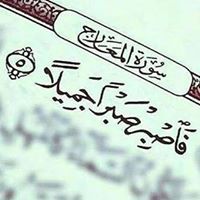 سورة المعارج
فَٱصْبِرْ صَبْرًا جَمِيلًا ٥